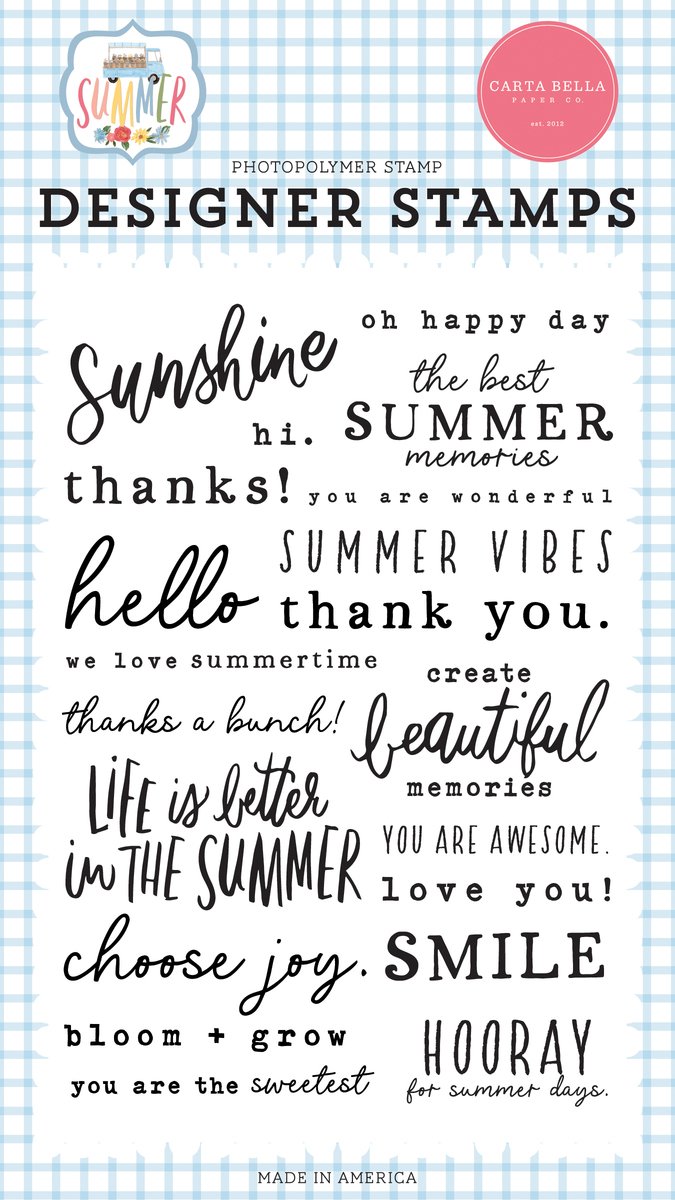 SUMMER
CARTA BELLA
PAPER CO.
est. 2012
PHOTOPOLYMER STAMP
DESIGNER STAMPS
Sunshine
oh happy day
the best
SUMMER
memories
hi.
thanks!
you are wonderful
hello
SUMMER VIBES
thank you.
we love summertime
create
beautiful
memories
thanks a bunch!
LIFE is better
in THE SUMMER
YOU ARE AWESOME.
love you!
choose joy.
SMILE
bloom + grow
you are the sweetest
HOORAY
for summer days.
MADE IN AMERICA